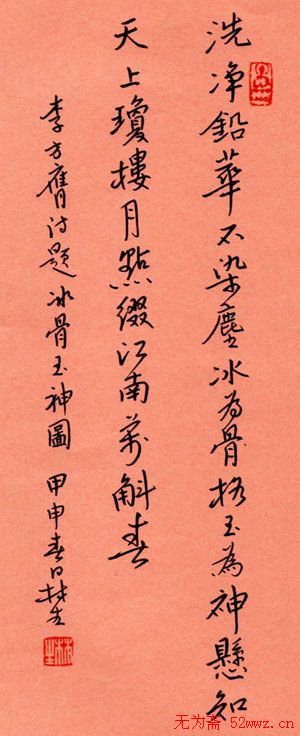 洗净鉛華不染塵冰为骨格玉為神懸知
天上瓊樓月點缀江南萬斛春
李方膺诗题冰骨玉神圖 甲申春日
无为斋 52wwz.cn